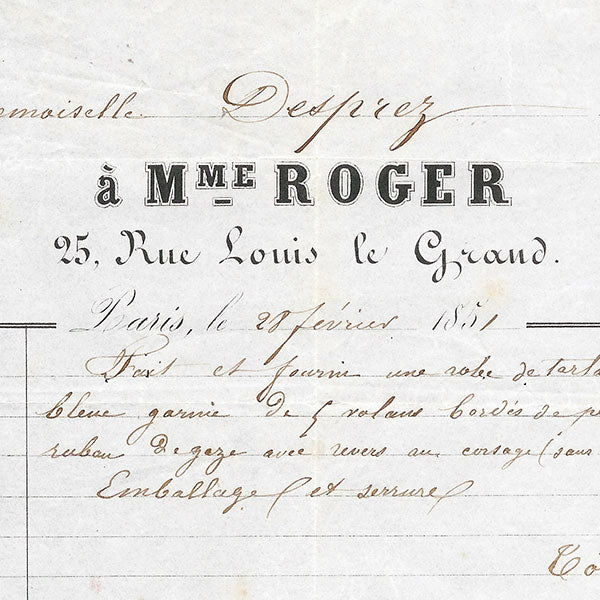 emoiselle Desprez
à MME ROGER
25, Rue Louis le Grand.
Paris, le 28 février 1851
Fait et fourni une robe de tarla
bleue garnie de 5 volans bordés de pe
ruban de gaze avec revers au corsage (sans
Emballage et serrure
To